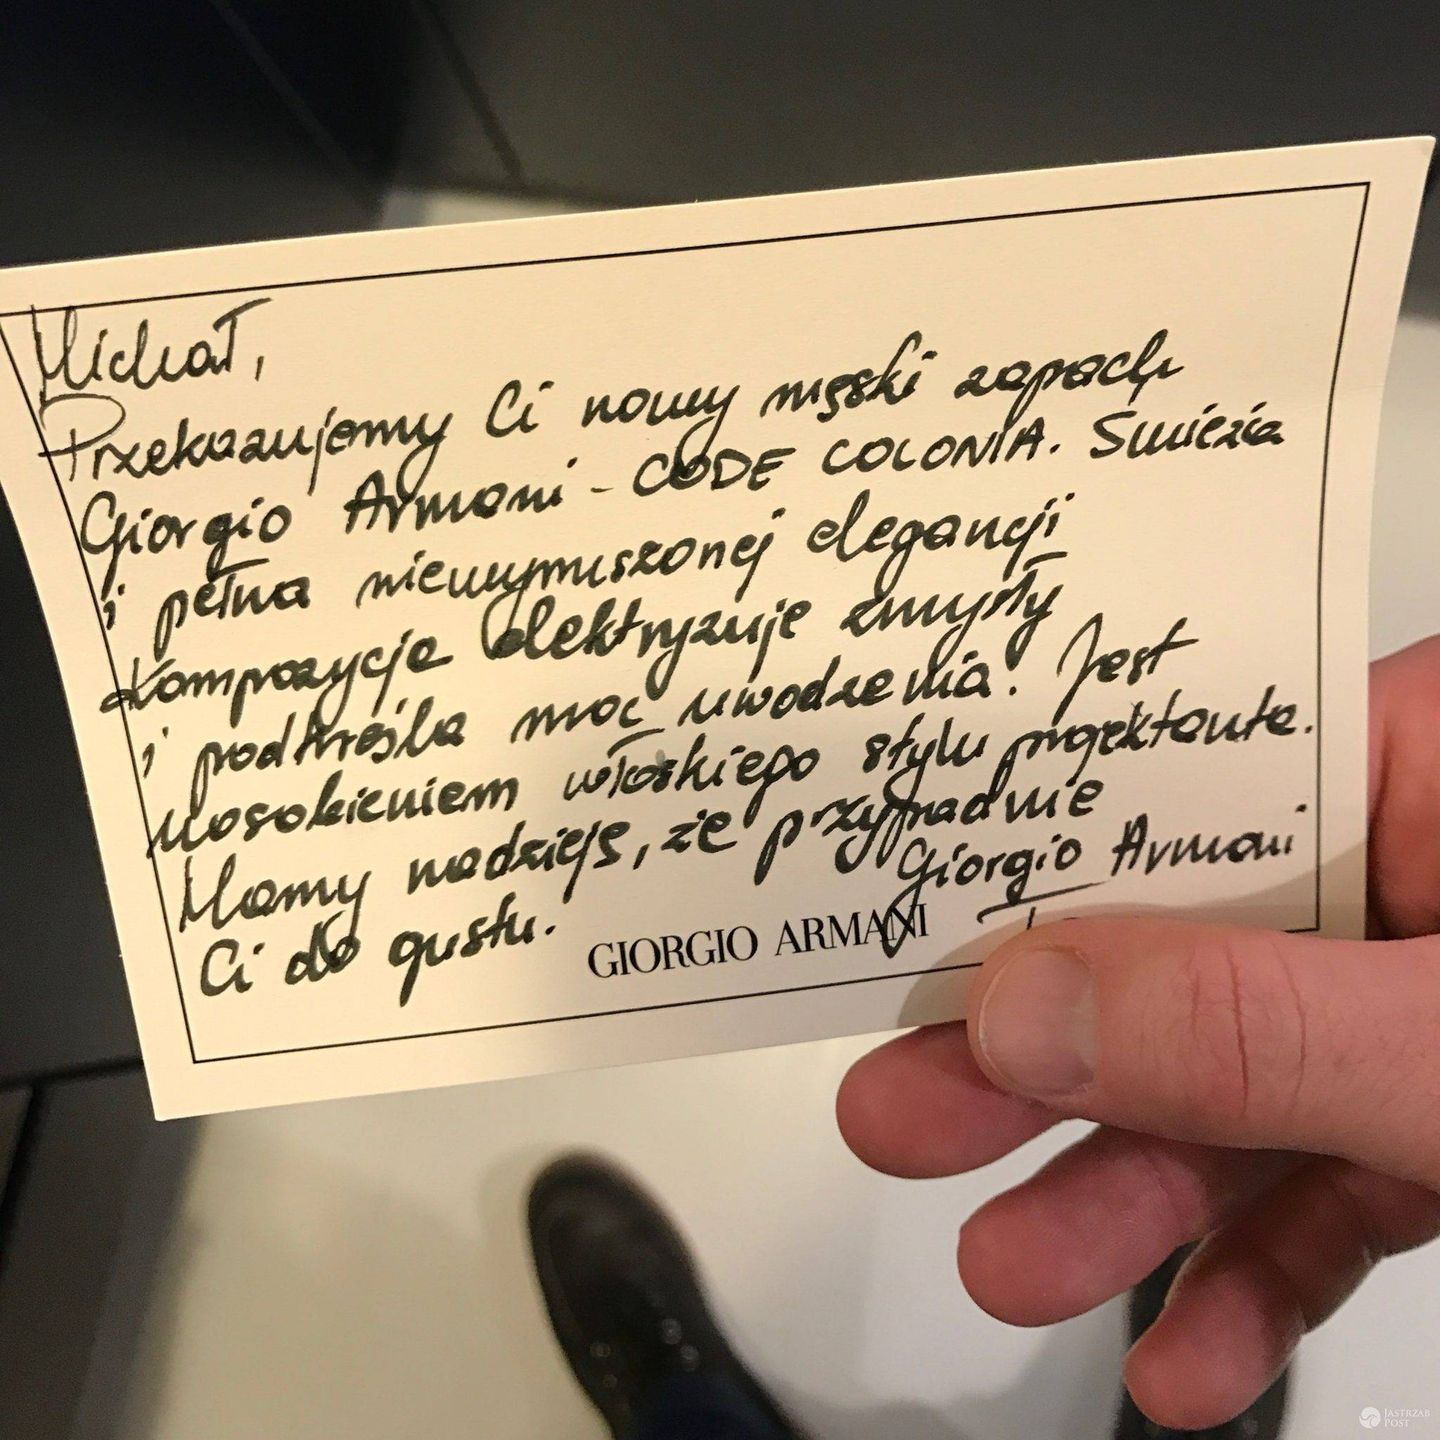 Michał,
Przekazujemy Ci nowy męski zapach
Giorgio Armani - CODE COLONIA. Świeża
i pełna niewymuszonej elegancji
kompozycja elektryzuje zmysły
i podkreśla moc uwodzenia. Jest
uosobieniem włoskiego stylu projektanta.
Mamy nadzieję, że przypadnie
Ci do gustu.
Giorgio Armani
GIORGIO ARMANI
JASTRZAB
POST